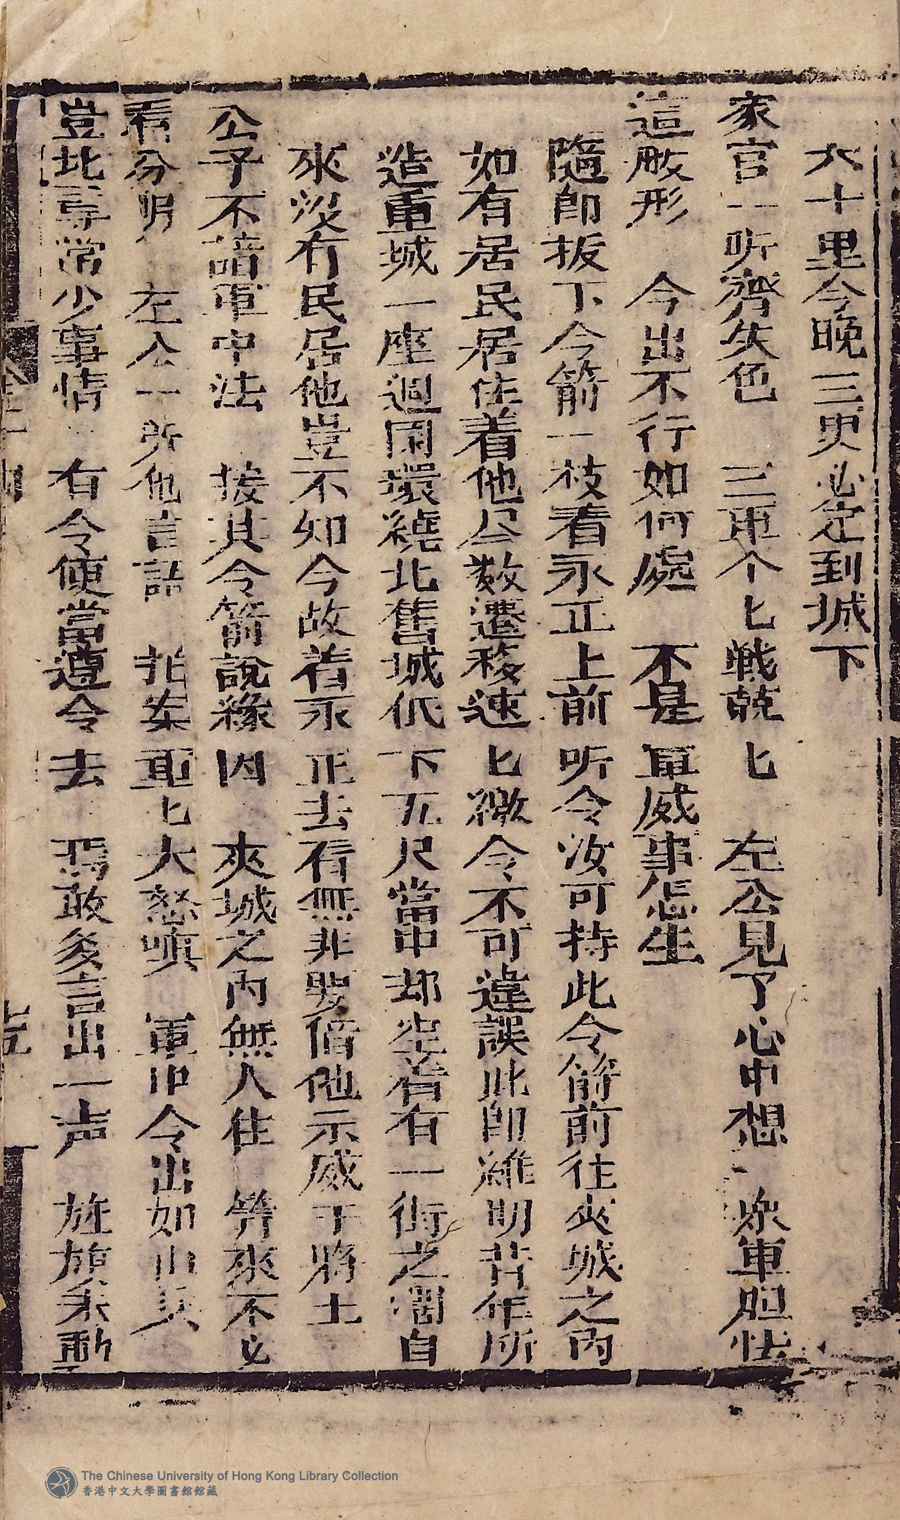 六十里今晚三更必定到城下
家官一听齊失色　三軍个匕戦兢匕　左公見了心中想　衆軍胆怯
這般形　今出不行如何處　不是軍威事怎生
隨即抜下令箭一枝着永正上前听令汝可持此令箭前往夾城之內
如有居民居住着他尽数遷移速匕徼令不可違誤此即雖明昔年所
造重城一座週圍環繞北舊城低下五尺當中却空着有一街之濶自
來没有民居他豈不知今故着永正去看無非要借他示威于將士
公子不諳軍中法　接其令箭說緣因　夾城之內無人住　筭來不必
看分明　左公一听他言語　拍案重匕大怒嗔　軍中令出如山㒷
豈比尋常少事情　有令便當遵令去　焉敢多言出一声　旌旗未動
The Chinese University of Hong Kong Library Collection
香港中文大學圖書館館藏